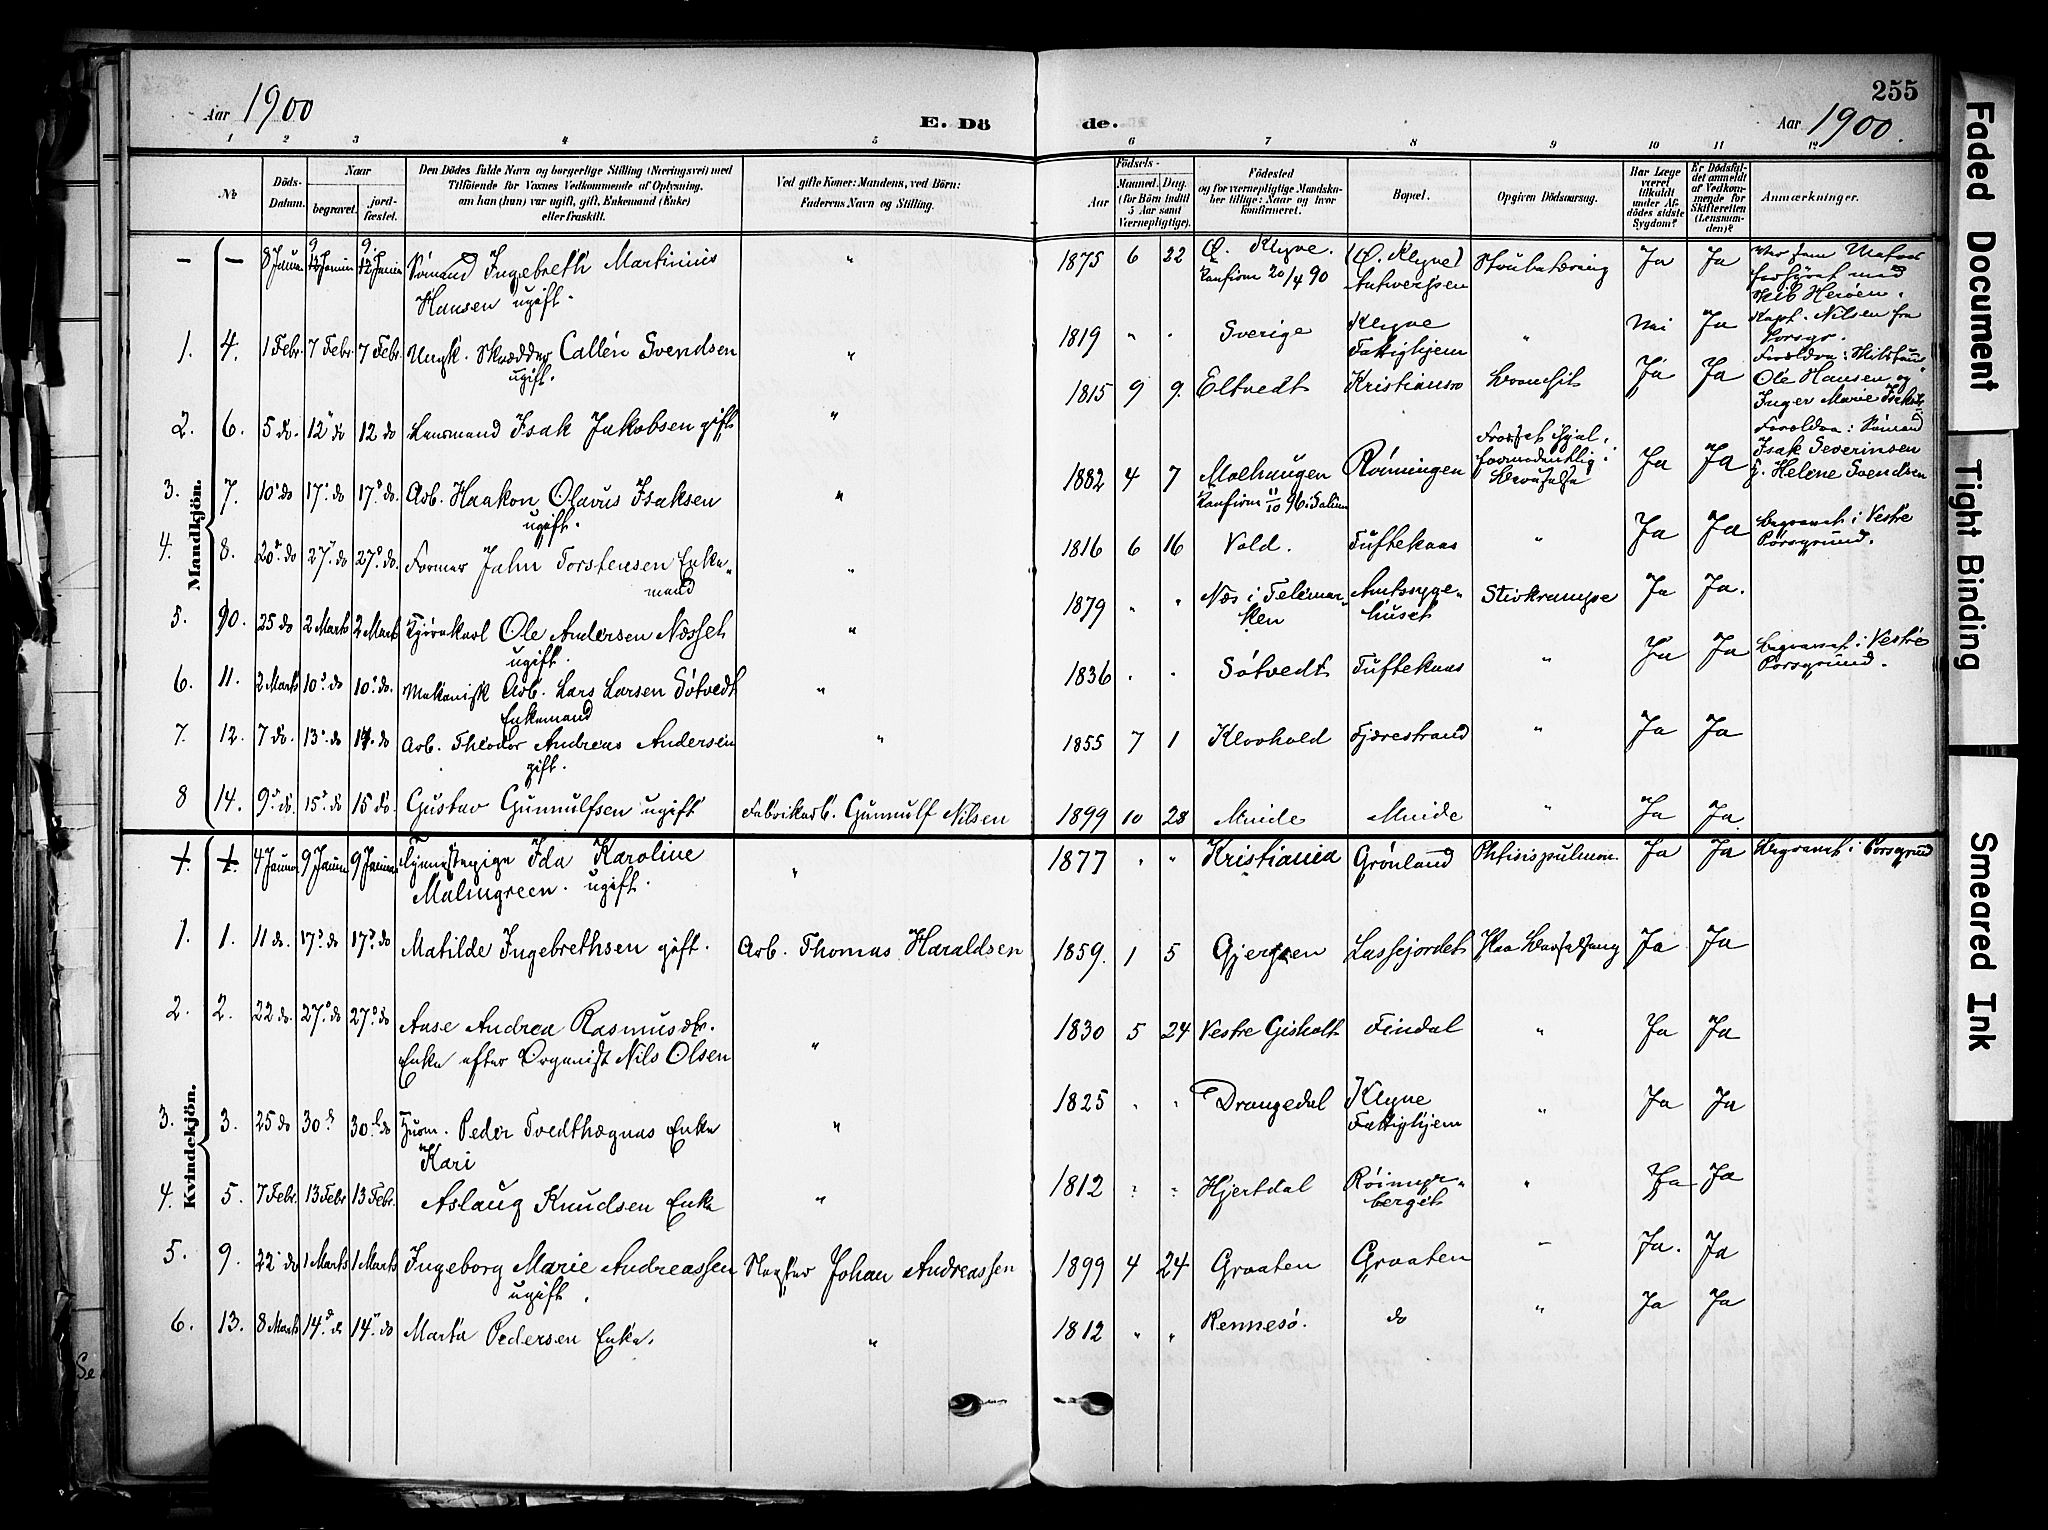 255
Aar 1900
E. Döde.
Aar 1900.
1 2 3 4 5 6 7 8 9 10 11 12
No
Döds-Datum.
Naar
begravet.
jord-fæstet.
Den Dödes fulde Navn og borgerlige Stilling (Næringsvei) med
Tilföiende for Voxnes Vedkommende af Oplysning.
om han (hun) var ugift, gift, Enkemand (Enke)
eller fraskilt.
Ved gifte Koner: Mandens, ved Börn:
Faderens Navn og Stilling.
Födsels-
Aar
Maaned. Dag.
(for Börn indtil
5 Aar samt
Værnepligtige).
Födested
og for værnepligtige Mandska-
ber tillige: Naar og hvor
konfirmeret.
Bopæl.
Opgiven Dödsaarsag.
Har Læge
været
tilkaldt
under Af-
dödes sidste
Sygdom?
Er Dödsfal-
det anmeldt
af Vedkom-
mende for
Skifteretten
(Lensman-
den)?
Anmærkninger.
Mandkjön.
– – 8 Januar Sömand Ingebreth Martinius " 1875 6 22 Ö. Klyve. (Ö. Klyve) Strubetæring Ja Ja
Hansen ugift. Konfirm 20/4 90 Antwerpen
Skib Heröen.
Kapt. Nilsen fra
Porsgr.
1. 4. 1 Febr. 7 Febr. 7 Febr. Skrædder Callén Svendsen " 1819 " " Sverige Klyve " Nei Ja
ugift. Fattighjem
2. 6. 5 do. 12 do 12 do Lensmand Isak Jakobsen gift " 1815 9 9. Eltvedt Kristiansro Bronchit Ja Ja Forældre:
Ole Hansen og
Inger Marie
3. 7. 10 do 17 do 17 do. Arb. Haakon Olavus Isaksen " 1882 4 7 Molhaugen Rönningen Ja Ja Forældre: Sömand
ugift. Isak Severinsen
g. Helene Svendsen
4. 8. 20 do 27 do 27 do. Former John Torstensen Enke- " 1816 6 16 Vold. Tuftekaas " Ja Ja begravet i Vestre
mand Porsgrund.
5. 10. 25 do 2 Marts 2 Marts Ole Andersen Næsset " 1879 " " Næs i Telemar- Amtssyge- Stivkrampe Ja Ja.
ugift. ken huset
6. 11. 2 Marts 10 do 10 do. Mekanisk Arb. Lars Larsen Sötvedt " 1836 " " Sötvedt Tuftekaas " Ja Ja begravet i Vestre
Enkemand Porsgrund.
7. 12. 7 do. 13 do Arb. Theodor Andreas Andersen " 1855 7 1 Klovhold Fjærestrand " Ja Ja
gift.
8 14. 9 do. 15 do 15 do. Gustav Gunnulfsen ugift Fabrikarb. Gunnulf Nilsen 1899 10 28 Mnide Mnide " Ja Ja
Kvindekjön.
4 Januar 9 Januar 9 Januar Tjenestepige Ida Karoline " 1877 " " Kristiania Grönland Phtisis pulmon. Ja Ja begravet i Porsgrund
Malmgreen. ugift.
1. 1. 11 do. 17 do 17 do Matilde Ingebrethsen gift. Arb. Thomas Haraldsen 1859. 1 5 Gjerpen Lassejordet Ja Ja
2. 2. 22 do. 27 do 27 do Anse Andrea Rasmusdtr. " 1830 5 24 Vestre Gisholt Findal " Ja Ja
Enke efter Organist Nils Olsen
3. 3. 25 do 30 do 30 do Husm. Peder Tvedthægnas Enke " 1825 " " Drangedal Klyve " Ja Ja
Kari Fattighjem
4. 5. 7 Febr. 13 Febr 13 Febr. Aslaug Knudsen Enke " 1812 " " Hjertdal Röimyr- " Ja Ja
berget
5. 9. 22 do 1 Marts 1 Marts Ingeborg Marie Andreassen Slagter Johan Andreassen 1899 4 24 Graaten Graaten – Ja. Ja
ugift.
6. 13. 8 Marts 14 do 14 do Marta Pedersen Enke. " 1812 " " Rennesö. do " Ja Ja
Faded Document
Tight Binding
Smeared Ink